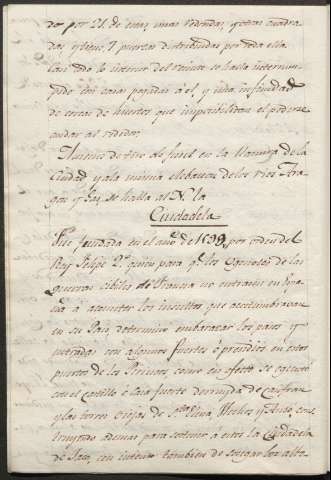 dos por 21. de ellas, unas redondas, y otras cuadra
das y tiene 7 puertas distribuidas por toda ella
Casi todo lo interior del recinto se halla interrum
pido con casas pegadas a el, y una infinidad
de cercas de huertos que imposibilitan el poderse
andar al rededor.
A menos de tiro de fusil en la llanura de la
Ciudad y ala misma elebacion de los rios Ara-
gon y Gas, se halla al N. la
Ciudadela
Fue fundada en el año de 1592, por orden del
Rey Felipe 2.º quien para q.e los Vasallos de las
guerras cibiles de Francia no entrasen en Espa
ña a cometer los insultos que acostumbravan
en su Pais, determinó embarazar los pasos y
entradas con algunos fuertes ó presidios en estos
puertos de los Pirineos, como en efecto se egecutó
con el castillo ó casa fuerte derruyda de Canfran
y las torres viejas de S.ta Elena, Hecho y Ansó, cons
truyendo ademas para sostener á estos la Ciudadela
de Jaca, con intento tambien de sosegar los albo-